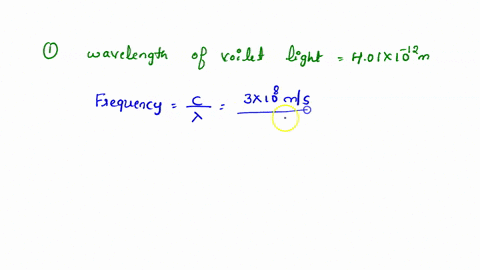 ① wavelength of voilet light = 4.01×10⁻¹² m
Frequency = c/λ = 3×10⁸ m/s